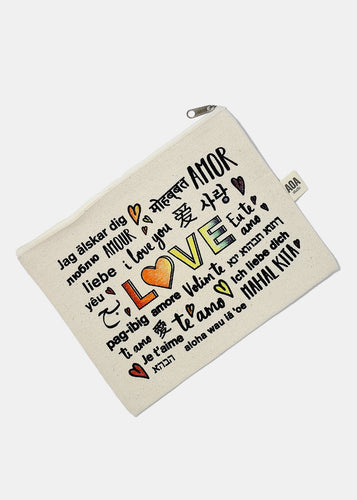 AOA
AMOR
मोहब्बत
Jag älskar dig
AMOUR
люблю
I love you
愛
사랑
Eu te amo
liebe
LOVE
yêu
pag-ibig
amore
Volim te
Ich liebe dich
ti amo
愛
te amo
MAHAL KITA
Je t'aime
aloha wau iā 'oe
אהבה